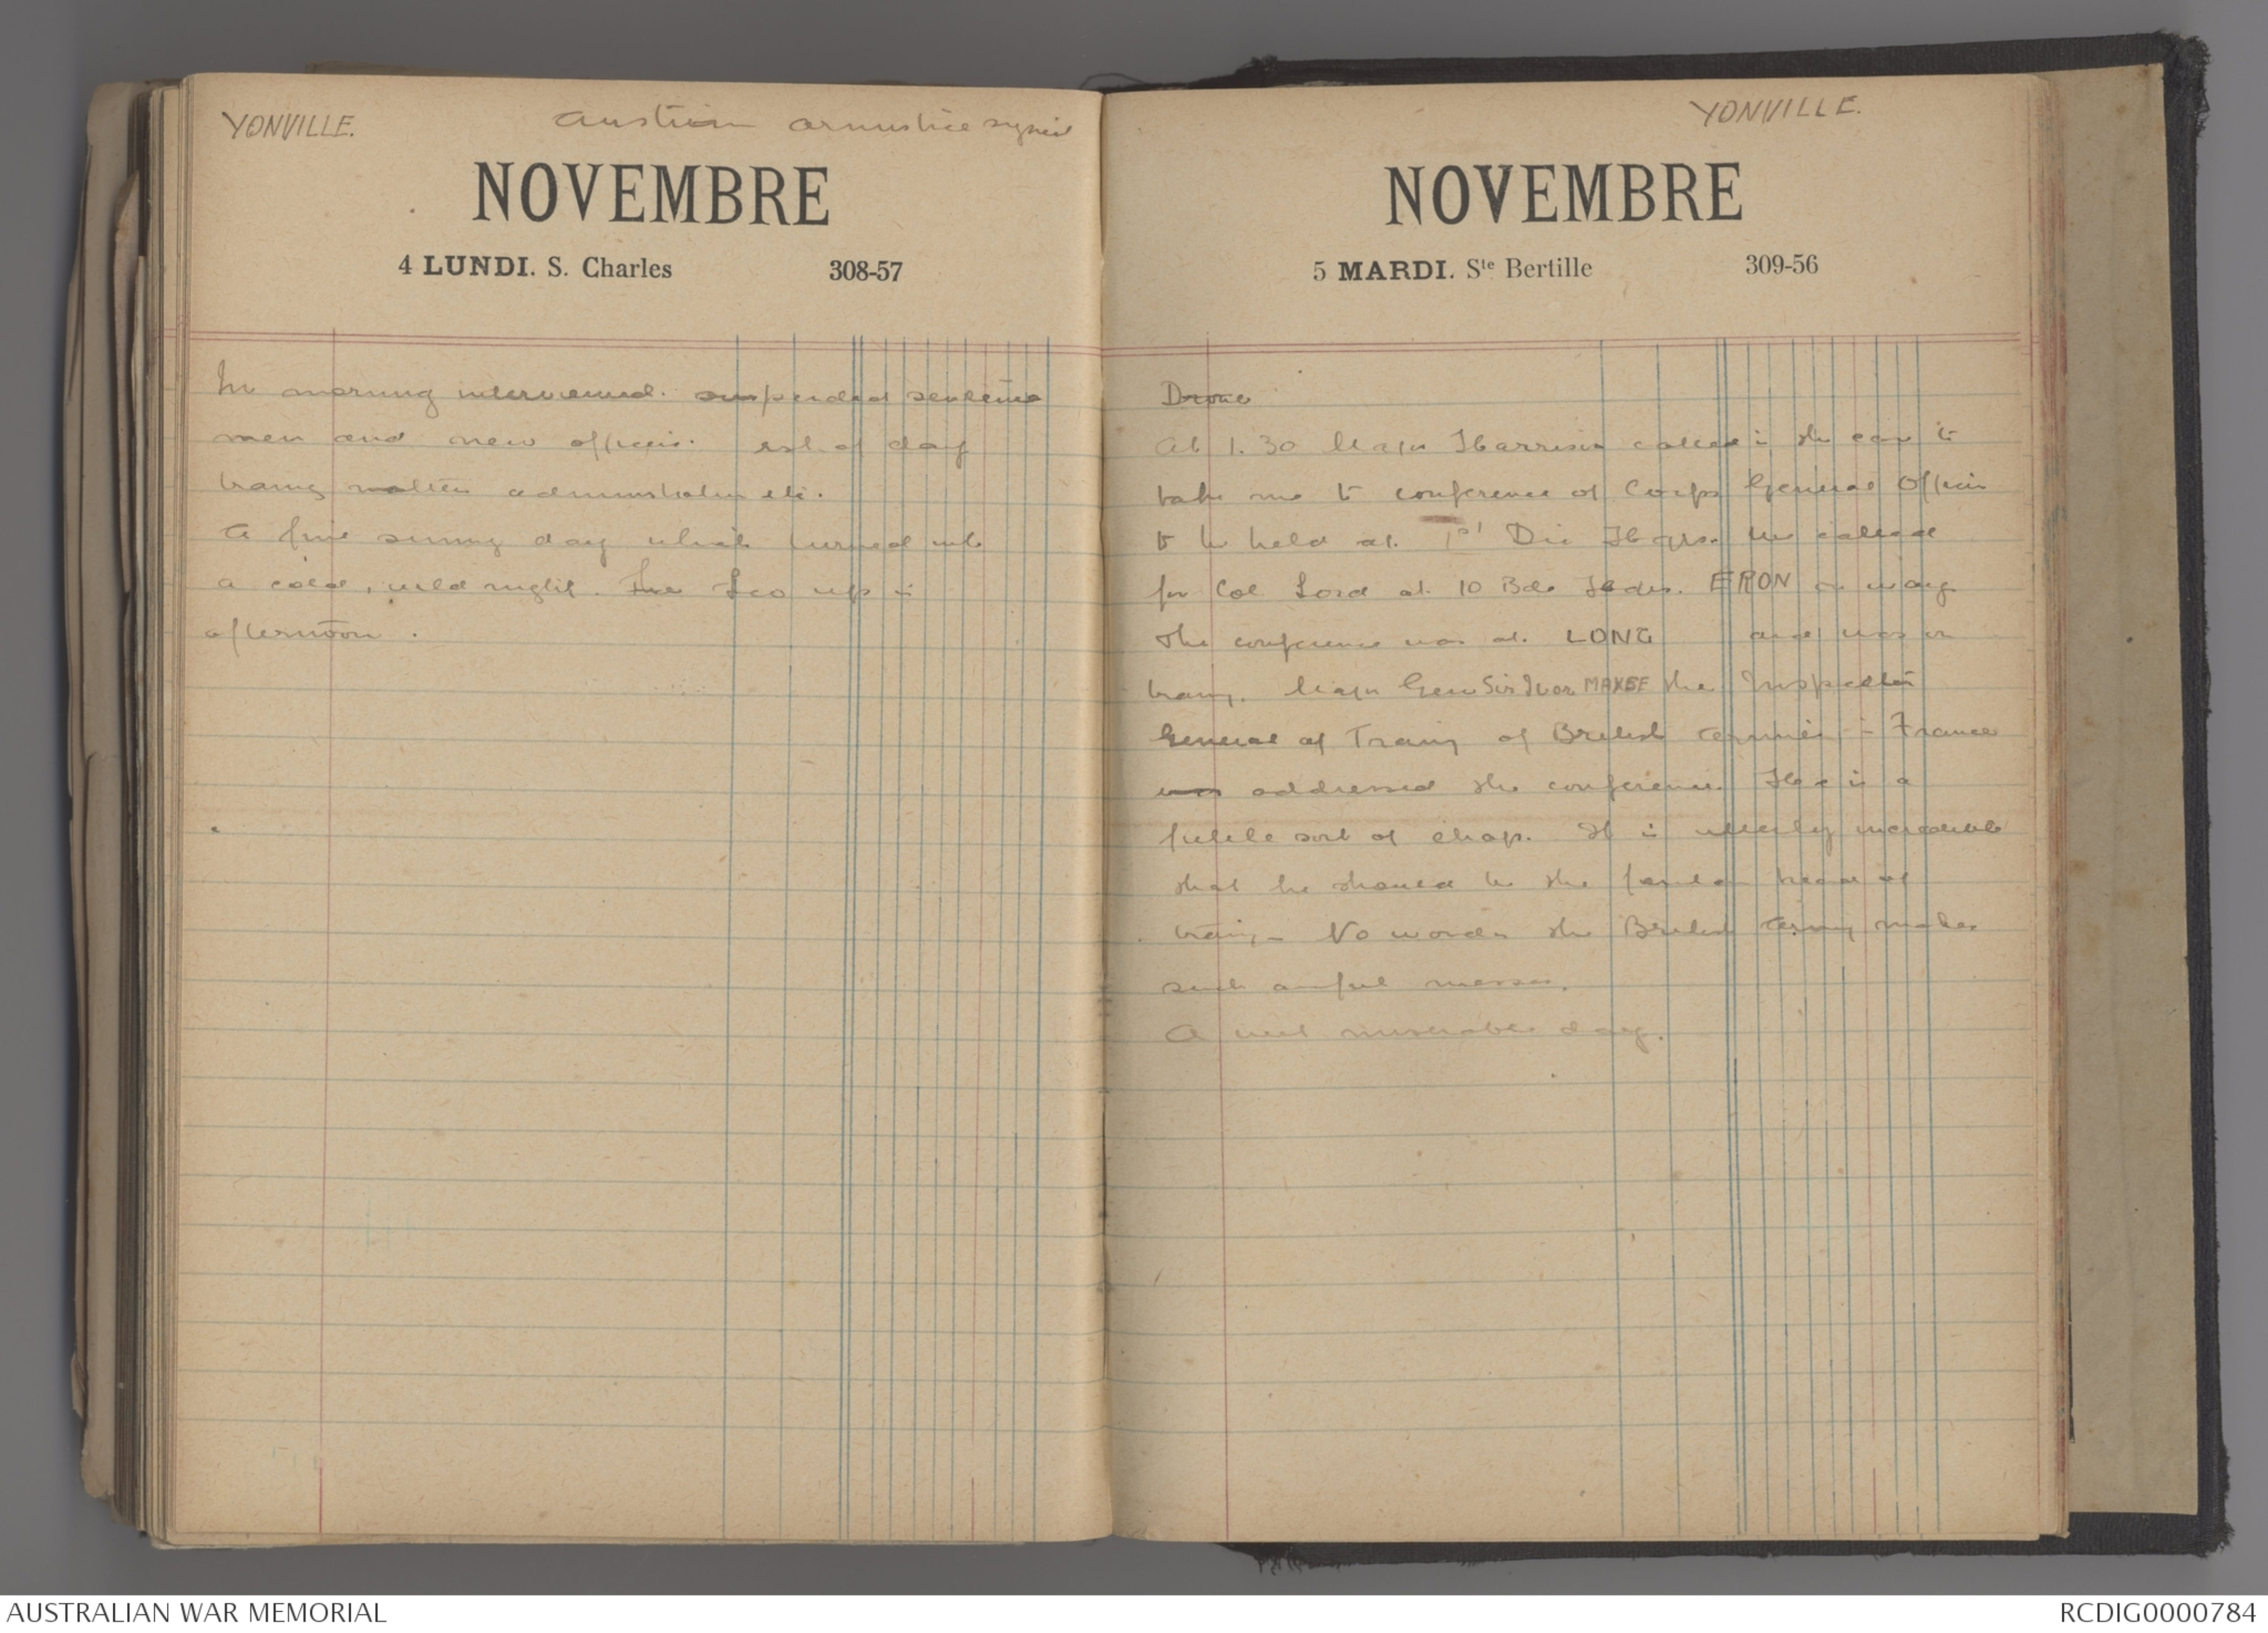 YONVILLE.
Austrian armistice signed
NOVEMBRE
4 LUNDI. S. Charles 308-57
In morning interviewed suspended sentence
men and new officers. rest of day
traing matters administration etc.
A fine sunny day which turned into
a cold, wild night. Leo up in
afternoon.
YONVILLE.
NOVEMBRE
5 MARDI. Ste Bertille 309-56
Drove
At 1.30 Major Harrison called in the car to
take me to conference of Corps General Officers
to be held at 1st Div Hqrs. We called
for Col Lord at 10 Bde Hdqs. ERON on way
The conference was at LONG and was on
traing. Major Gen Sir Ivor MAXSE the Inspector
General of Traing of British Armies in France
was addressed the conference. He is a
futile sort of chap. It is utterly incredible
that he should be the head of
traing - No wonder the British Army makes
such awful messes.
A wet miserable day.
AUSTRALIAN WAR MEMORIAL
RCDIG0000784